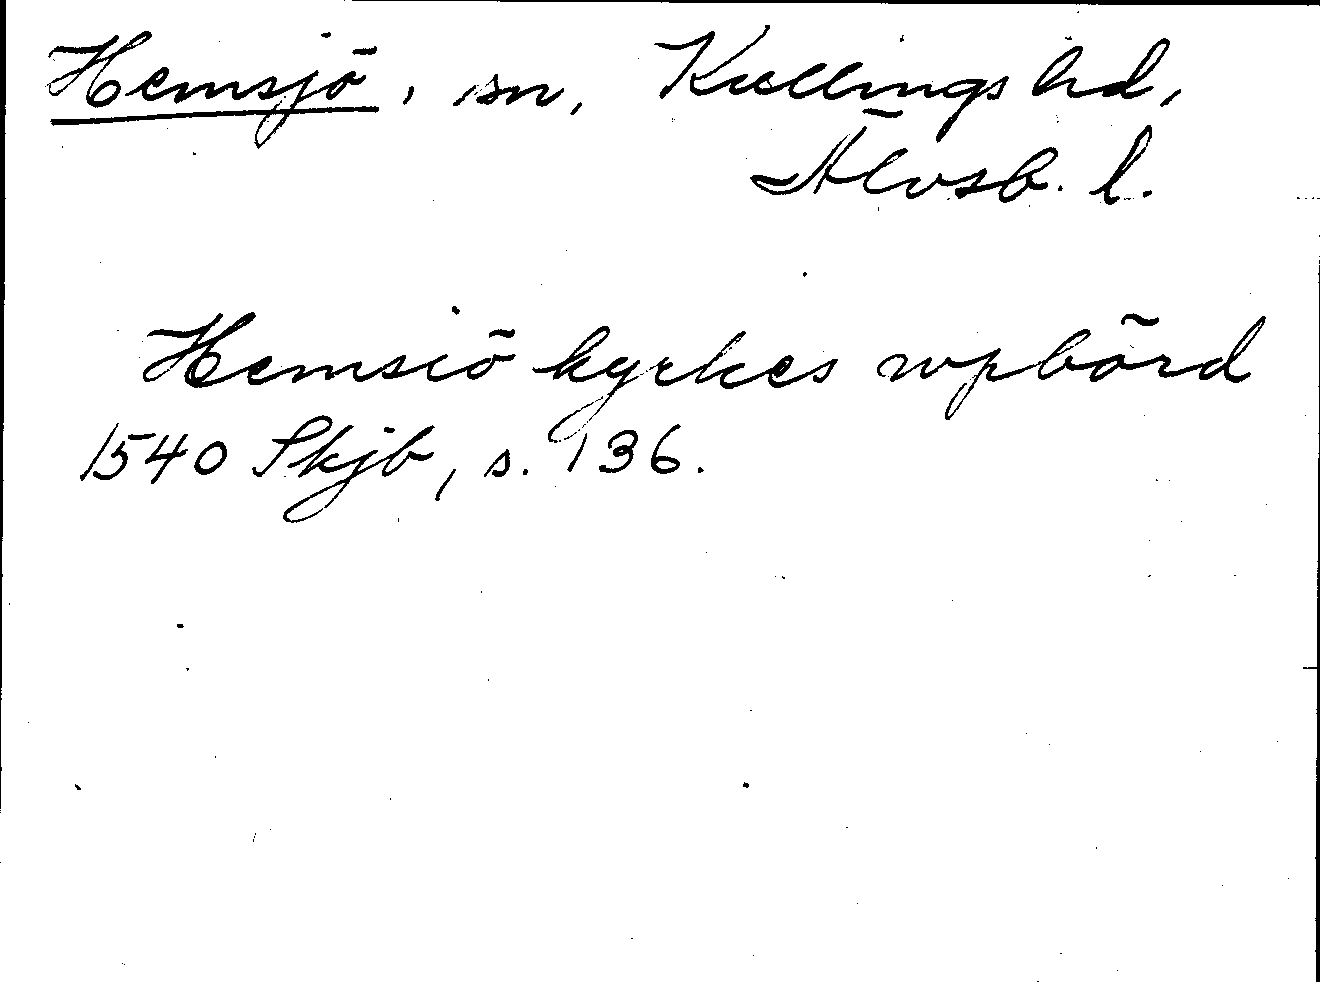 Hemsjö, sn, Kullings hd,
Älvsb. l.
Hemsiö kyrkes wpbörd
1540 Skjb, s. 136.